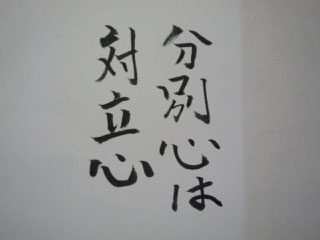 分別心は
対立心